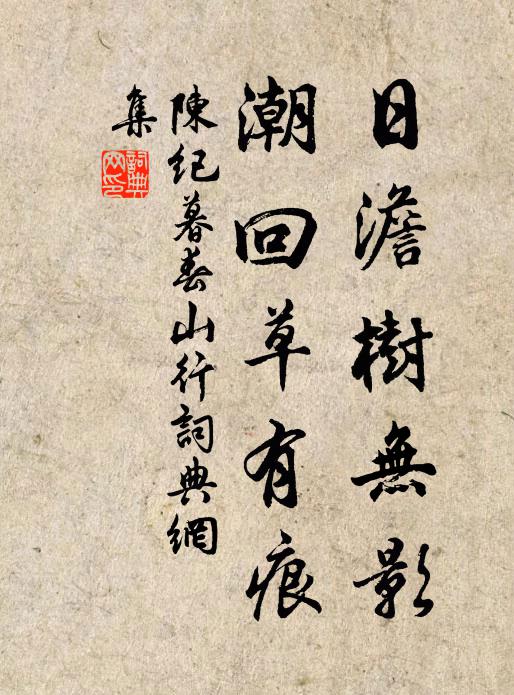 日澹樹無影
潮回草有痕
陳紀暮春山行詞典網
集
詞典
网印